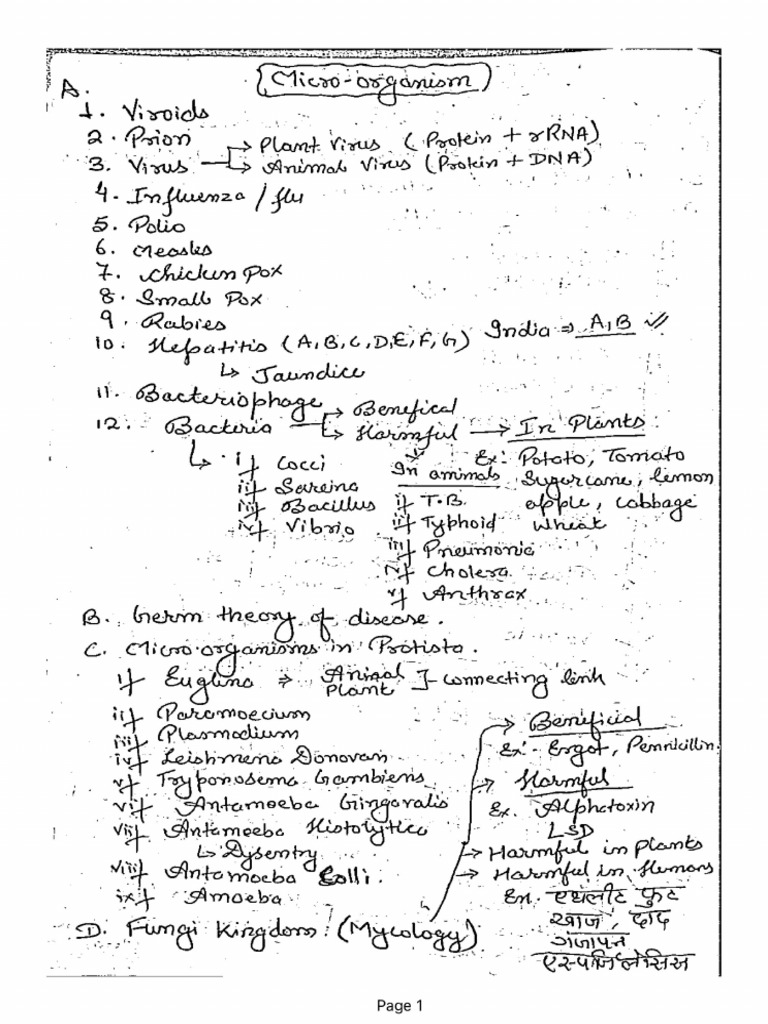 Micro-organism
A.
1. Viroids
2. Prion
3. Virus → Plant Virus (Protein + rRNA)
→ Animal Virus (Protein + DNA)
4. Influenza / flu
5. Polio
6. Measles
7. Chicken Pox
8. Small Pox
9. Rabies
10. Hepatitis (A, B, C, D, E, F, G) India ⇒ A, B
↳ Jaundice
11. Bacteriophage
12. Bacteria → Benefical
→ Harmful → In Plants
Ex: Potato, Tomato
Sugercane, lemon
apple, cabbage
wheat
↳ i) Cocci
ii) Sarcina
iii) Bacillus
iv) Vibrio
In animals
i) T.B.
ii) Typhoid
iii) Pneumonia
iv) Cholera
v) Anthrax
B. Germ theory of disease.
C. Micro organisms in Protista.
i) Euglina ⇒ Animal Plant ] connecting link
ii) Paramoecium
iii) Plasmodium
iv) Leishmena Donovan
v) Tryponosema Gambiens
vi) Antamoeba Gingavalis
vii) Antamoeba Histolytica
↳ Dysentry
viii) Antamoeba Colli.
ix) Amoeba
D. Fungi Kingdom (Mycology)
→ Beneficial
Ex:- Ergot, Pennicillin.
→ Harmful
Ex. Alphatoxin
LSD
→ Harmful in plants
→ Harmful in Humans
Ex. एथलीट फुट
खाज, दाद
गंजापन
एस्पर्जिलेसिस
Page 1